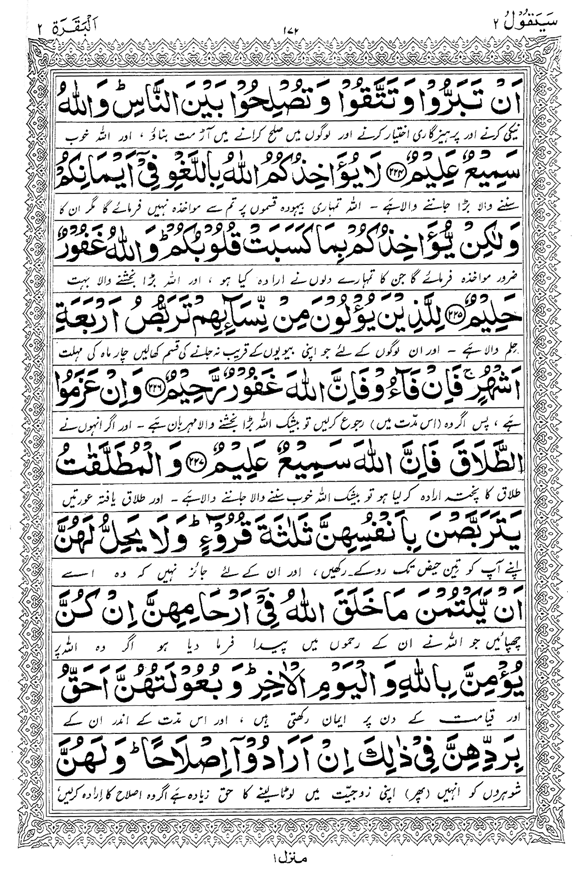 سَيَقُولُ ٢ ١٧٢ اَلْبَقَرَة ٢
اَنْ تَبَرُّوْا وَ تَتَّقُوْا وَ تُصْلِحُوْا بَيْنَ النَّاسِ ؕ وَ اللّٰهُ
نیکی کرنے اور پرہیزگاری اختیار کرنے اور لوگوں میں صلح کرانے میں آڑ مت بناؤ ، اور اللہ خوب
سَمِيْعٌ عَلِيْمٌ ﴿۲۲۴﴾ لَا يُؤَاخِذُكُمُ اللّٰهُ بِاللَّغْوِ فِيْۤ اَيْمَانِكُمْ
سننے والا بڑا جاننے والا ہے ۔ اللہ تمہاری بیہودہ قسموں پر تم سے مواخذہ نہیں فرمائے گا مگر ان کا
وَ لٰكِنْ يُّؤَاخِذُكُمْ بِمَا كَسَبَتْ قُلُوْبُكُمْ ؕ وَ اللّٰهُ غَفُوْرٌ
ضرور مواخذہ فرمائے گا جن کا تمہارے دلوں نے ارادہ کیا ہو ، اور اللہ بڑا بخشنے والا بہت
حَلِيْمٌ ﴿۲۲۵﴾ لِلَّذِيْنَ يُؤْلُوْنَ مِنْ نِّسَآئِهِمْ تَرَبُّصُ اَرْبَعَةِ
حلم والا ہے ۔ اور ان لوگوں کے لئے جو اپنی بیویوں کے قریب نہ جانے کی قسم کھالیں چار ماہ کی مہلت
اَشْهُرٍ ۚ فَاِنْ فَآءُوْ فَاِنَّ اللّٰهَ غَفُوْرٌ رَّحِيْمٌ ﴿۲۲۶﴾ وَ اِنْ عَزَمُوا
ہے ، پس اگر وہ (اس مدت میں) رجوع کرلیں تو بیشک اللہ بڑا بخشنے والا مہربان ہے ۔ اور اگر انہوں نے
الطَّلَاقَ فَاِنَّ اللّٰهَ سَمِيْعٌ عَلِيْمٌ ﴿۲۲۷﴾ وَ الْمُطَلَّقٰتُ
طلاق کا پختہ ارادہ کر لیا ہو تو بیشک اللہ خوب سننے والا جاننے والا ہے ۔ اور طلاق یافتہ عورتیں
يَتَرَبَّصْنَ بِاَنْفُسِهِنَّ ثَلٰثَةَ قُرُوْٓءٍ ؕ وَ لَا يَحِلُّ لَهُنَّ
اپنے آپ کو تین حیض تک روکے رکھیں ، اور ان کے لئے جائز نہیں کہ وہ اسے
اَنْ يَّكْتُمْنَ مَا خَلَقَ اللّٰهُ فِيْۤ اَرْحَامِهِنَّ اِنْ كُنَّ
چھپائیں جو اللہ نے ان کے رحموں میں پیدا فرما دیا ہو اگر وہ اللہ پر
يُؤْمِنَّ بِاللّٰهِ وَ الْيَوْمِ الْاٰخِرِ ؕ وَ بُعُوْلَتُهُنَّ اَحَقُّ
اور قیامت کے دن پر ایمان رکھتی ہیں ، اور اس مدت کے اندر ان کے
بِرَدِّهِنَّ فِيْ ذٰلِكَ اِنْ اَرَادُوْۤا اِصْلَاحًا ؕ وَ لَهُنَّ
شوہروں کو انہیں (پھر) اپنی زوجیت میں لوٹا لینے کا حق زیادہ ہے اگر وہ اصلاح کا ارادہ کرلیں
منزل ١